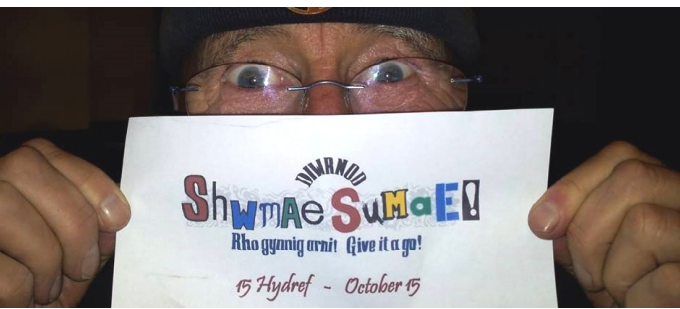 DIWRNOD
ShwmAe SuMaE!
Rho gynnig arni! Give it a go!
15 Hydref - October 15